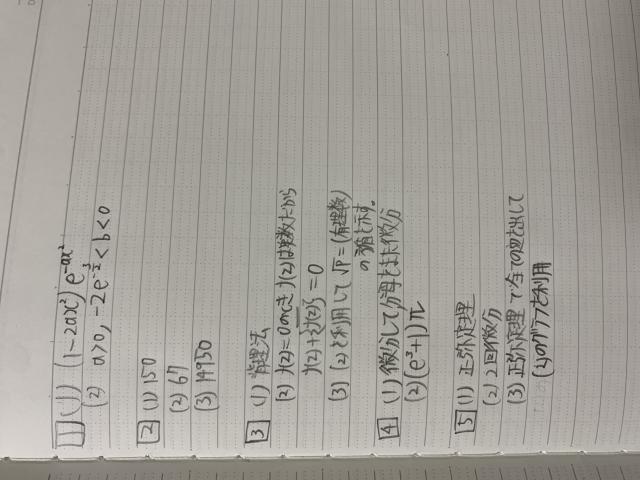 1 (1) (1-2ax²)e^{-ax²}
(2) a>0, -2e^{-3/2}<b<0
2 (1) 150
(2) 67
(3) 14950
3 (1) 背理法
(2) f(z)=0のとき f(z)は実数だから
=0
(3) (2)を利用して√P=(有理数)
の形を示す。
4 (1) 微分して分母をまた微分
(2) (e³+1)π
5 (1) 正弦定理
(2) 2回微分
(3) 正弦定理で全ての辺を出して
(2)のグラフを利用